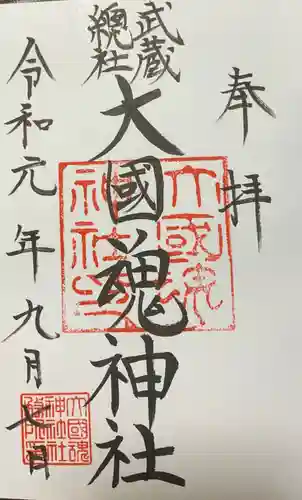 奉拝
武蔵
總社
大國魂神社
令和元年九月七日
大國魂
神社印
大國魂
神社社